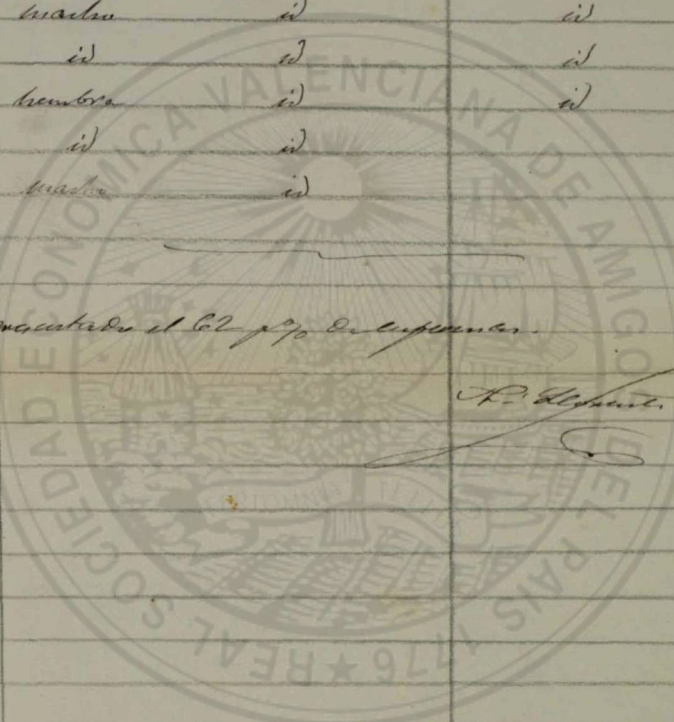 macho id id
id id id
hembra id id
id id
macho id
el 62 p% de enfermos.
REAL SOCIEDAD ECONOMICA VALENCIANA DE AMIGOS DEL PAIS 1776